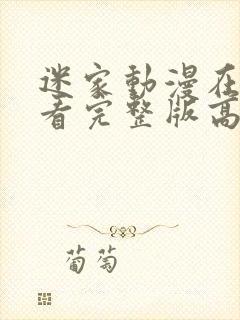 迷家動漫在
看完整版高
葡萄